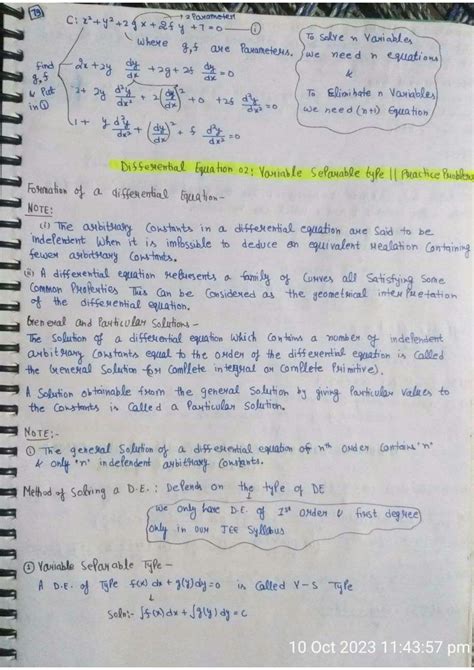 79
2 Parameters
C: x² + y² + 2gx + 2fy + 7 = 0 — ①
where g, f are Parameters.
find g,f & Put in ①
2x + 2y dy/dx + 2g + 2f dy/dx = 0
2 + 2y d²y/dx² + 2(dy/dx)² + 0 + 2f d²y/dx² = 0
1 + y d²y/dx² + (dy/dx)² + f d²y/dx² = 0
To Solve n Variables
we need n equations
&
To Eliminate n Variables
we need (n+1) Equation
Differential Equation 02: Variable Seperable type || Practice Problem
Formation of a differential Equation -
NOTE:
(i) The arbitrary Constants in a differential equation are said to be
indepent when it is impossible to deduce an equivalent realation Containing
fewer arbitrary Constants.
(ii) A differential equation represents a family of Curves all Satisfying Some
Common Properties This Can be Considered as the geometrical interpretation
of the differential equation.
General and Particular Solutions -
The Solution of a differential equation which Contains a number of indepent
arbitrary Constants equal to the order of the differential equation is Called
the General Solution (or Complete integral or Complete Primitive).
A Solution obtainable from the general Solution by giving Particular Values to
the Constants is Called a Particular Solution.
NOTE:-
① The general Solution of a differential equation of nth order Contains 'n'
& only 'n' indepent arbitrary Constants.
Method of Solving a D.E.: Depends on the type of DE
We only have D.E. of 1st order & first degree
only in our JEE Syllabus
① Variable Seperable Type -
A D.E. of Type f(x) dx + g(y) dy = 0 is Called V-S Type
Soln:- ∫f(x) dx + ∫g(y) dy = C
10 Oct 2023 11:43:57 pm